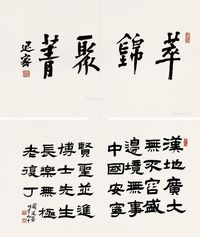 萃錦聚菁
漢地廣大
無不容盛
無事
中國安寧
賢聖並進
博士先生
長樂無極
老復丁